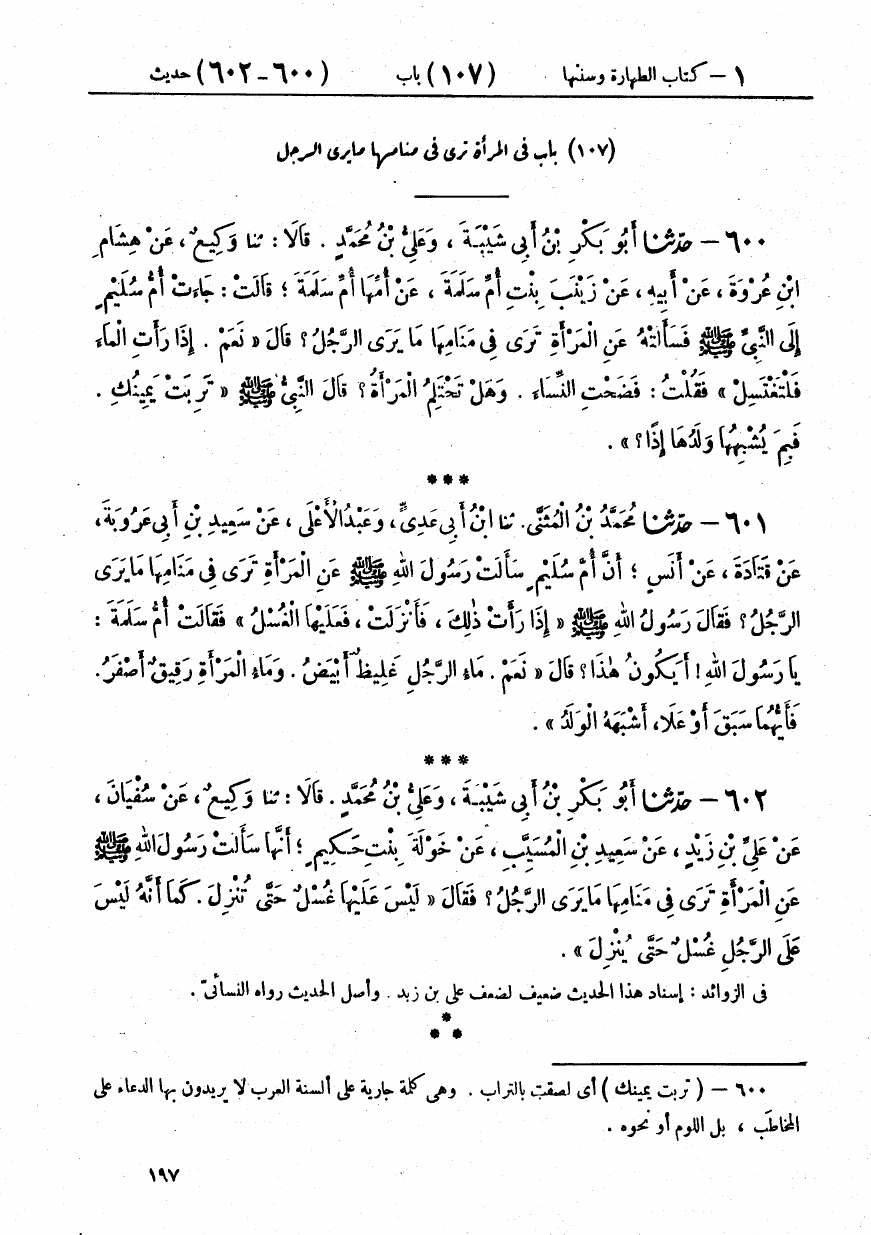 ١ – كتاب الطهارة وسننها (١٠٧) باب (٦٠٠-٦٠٢) حديث
(١٠٧) باب فى المرأة ترى فى منامها مايرى الرجل
٦٠٠ – حدّثنا أَبُو بَكْرِ بْنُ أَبِى شَيْبَةَ ، وَعَلِىُّ بْنُ مُحَمَّدٍ . قَالَا : ثنا وَكِيعٌ ، عَنْ هِشَامِ
ابْنِ عُرْوَةَ ، عَنْ أَبِيهِ ، عَنْ زَيْنَبَ بِنْتِ أُمِّ سَلَمَةَ ، عَنْ أُمِّهَا أُمِّ سَلَمَةَ ؛ قَالَتْ : جَاءَتْ أُمُّ سُلَيْمٍ
إِلَى النَّبِىِّ ﷺ فَسَأَلَتْهُ عَنِ الْمَرْأَةِ تَرَى فِى مَنَامِهَا مَا يَرَى الرَّجُلُ ؟ قَالَ « نَعَمْ . إِذَا رَأَتِ الْمَاءَ
فَلْتَغْتَسِلْ » فَقُلْتُ : فَضَحْتِ النِّسَاءَ . وَهَلْ تَحْتَلِمُ الْمَرْأَةُ ؟ قَالَ النَّبِىُّ ﷺ « تَرِبَتْ يَمِينُكِ .
فَبِمَ يُشْبِهُهَا وَلَدُهَا إِذًا ؟ » .
***
٦٠١ – حدّثنا مُحَمَّدُ بْنُ الْمُثَنَّى . ثنا ابْنُ أَبِى عَدِىٍّ ، وَعَبْدُ الْأَعْلَى ، عَنْ سَعِيدِ بْنِ أَبِى عَرُوبَةَ ،
عَنْ قَتَادَةَ ، عَنْ أَنَسٍ ؛ أَنَّ أُمَّ سُلَيْمٍ سَأَلَتْ رَسُولَ اللهِ ﷺ عَنِ الْمَرْأَةِ تَرَى فِى مَنَامِهَا مَا يَرَى
الرَّجُلُ ؟ فَقَالَ رَسُولُ اللهِ ﷺ « إِذَا رَأَتْ ذٰلِكَ ، فَأَنْزَلَتْ ، فَعَلَيْهَا الْغُسْلُ » فَقَالَتْ أُمُّ سَلَمَةَ :
يَا رَسُولَ اللهِ ! أَيَكُونُ هٰذَا ؟ قَالَ « نَعَمْ . مَاءُ الرَّجُلِ غَلِيظٌ أَبْيَضُ . وَمَاءُ الْمَرْأَةِ رَقِيقٌ أَصْفَرُ .
فَأَيُّهُمَا سَبَقَ أَوْ عَلَا، أَشْبَهَهُ الْوَلَدُ » .
***
٦٠٢ – حدّثنا أَبُو بَكْرِ بْنُ أَبِى شَيْبَةَ ، وَعَلِىُّ بْنُ مُحَمَّدٍ . قَالَا : ثنا وَكِيعٌ ، عَنْ سُفْيَانَ ،
عَنْ عَلِىِّ بْنِ زَيْدٍ ، عَنْ سَعِيدِ بْنِ الْمُسَيَّبِ ، عَنْ خَوْلَةَ بِنْتِ حَكِيمٍ ؛ أَنَّهَا سَأَلَتْ رَسُولَ اللهِ ﷺ
عَنِ الْمَرْأَةِ تَرَى فِى مَنَامِهَا مَا يَرَى الرَّجُلُ ؟ فَقَالَ « لَيْسَ عَلَيْهَا غُسْلٌ حَتَّى تُنْزِلَ . كَمَا أَنَّهُ لَيْسَ
عَلَى الرَّجُلِ غُسْلٌ حَتَّى يُنْزِلَ » .
فى الزوائد : إسناد هذا الحديث ضعيف لضعف على بن زيد . وأصل الحديث رواه النسائىّ .
***
٦٠٠ – ( تربت يمينك ) أى لصقت بالتراب . وهى كلمة جارية على ألسنة العرب لا يريدون بها الدعاء على
المخاطَب ، بل اللوم أو نحوه .
١٩٧